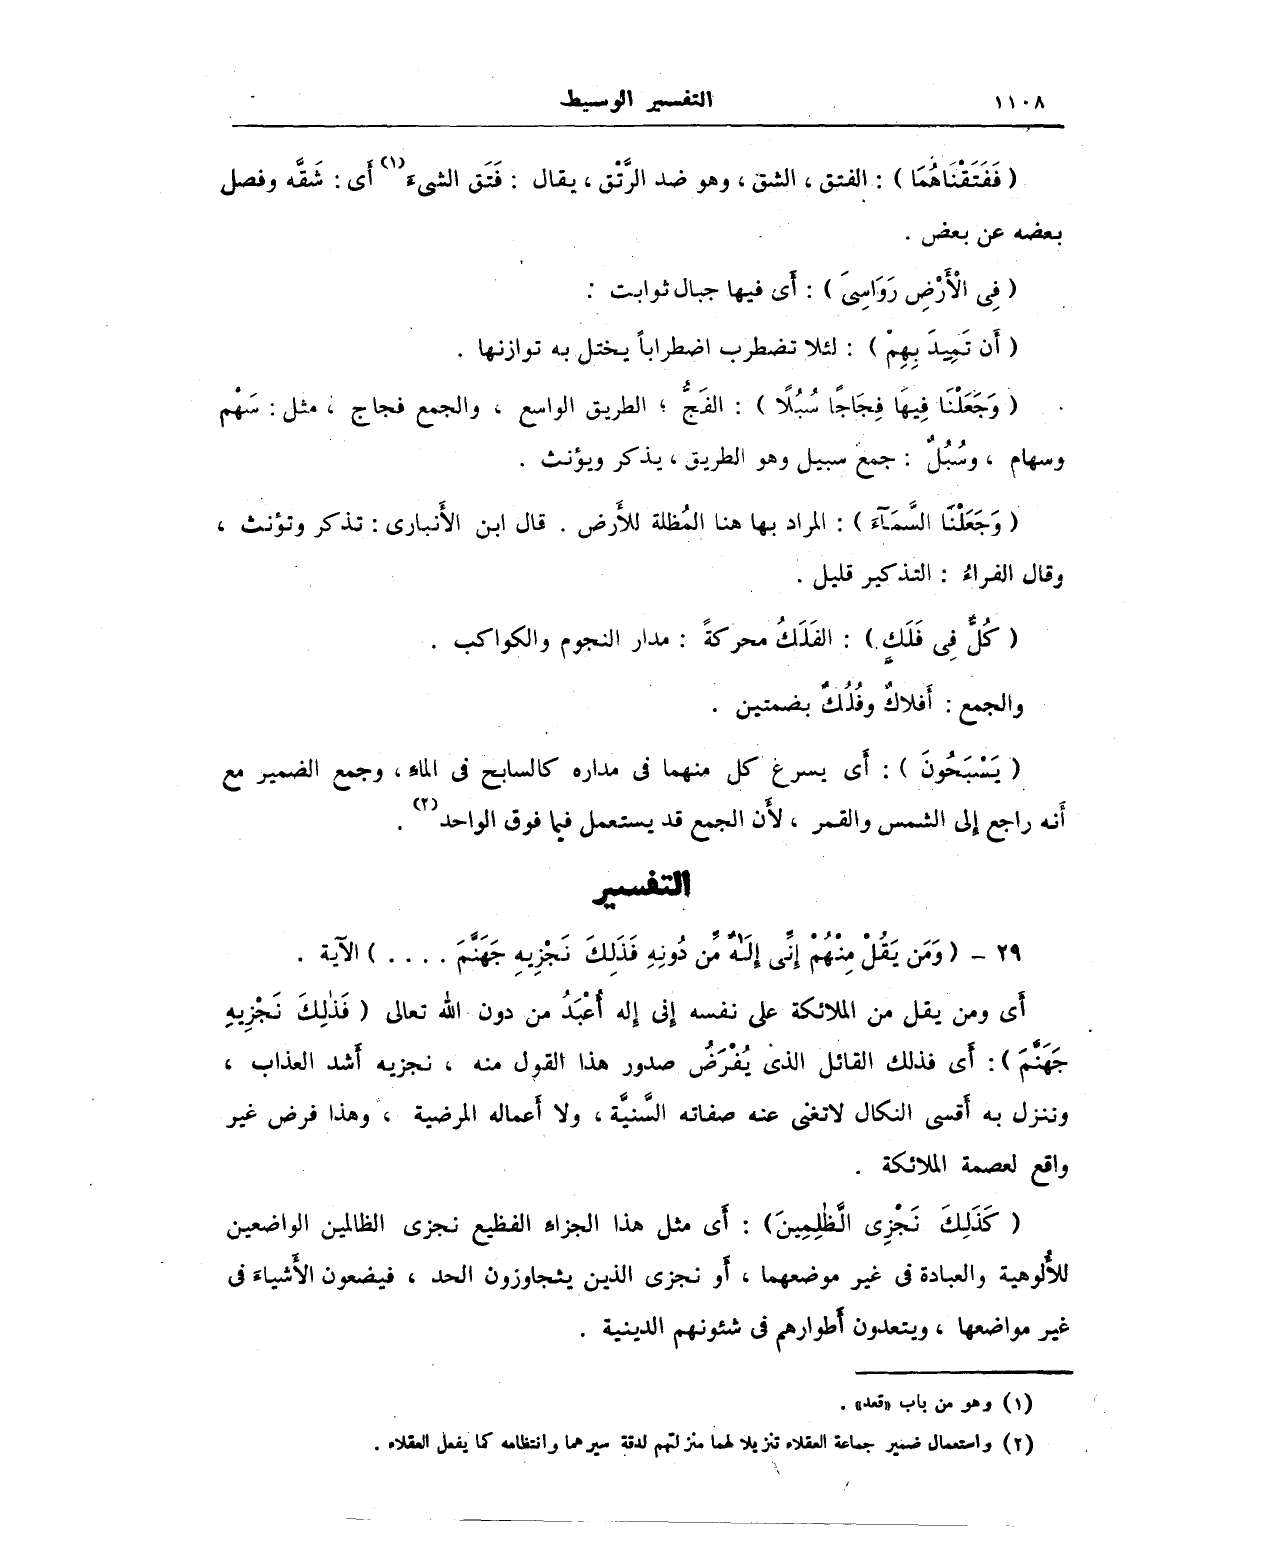 ١١٠٨ التفسير الوسيط
( فَفَتَقْنَاهُمَا ) : الفتق ، الشق ، وهو ضد الرَّتْق ، يقال : فَتَق الشىءَ (١) أَى : شَقَّه وفصل
بعضه عن بعض .
( فِى الْأَرْضِ رَوَاسِىَ ) : أَى فيها جبال ثوابت :
( أَن تَمِيدَ بِهِمْ ) : لئلا تضطرب اضطراباً يختل به توازنها .
( وَجَعَلْنَا فِيهَا فِجَاجًا سُبُلًا ) : الفَجُّ ؛ الطريق الواسع ، والجمع فجاج ، مثل : سَهْم
وسهام ، وسُبُلٌ : جمع سبيل وهو الطريق ، يذكر ويؤنث .
( وَجَعَلْنَا السَّمَآءَ ) : المراد بها هنا المُظلة للأَرض . قال ابن الأَنبارى : تذكر وتؤنث ،
وقال الفراءُ : التذكير قليل .
( كُلٌّ فِى فَلَكٍ ) : الفَلَكُ محركةً : مدار النجوم والكواكب .
والجمع : أَفلاكٌ وفُلُكٌ بضمتين .
( يَسْبَحُونَ ) : أَى يسرع كل منهما فى مداره كالسابح فى الماءِ ، وجمع الضمير مع
أَنه راجع إلى الشمس والقمر ، لأَن الجمع قد يستعمل فيما فوق الواحد (٢) .
التفسير
٢٩ - ( وَمَن يَقُلْ مِنْهُمْ إِنِّى إِلَٰهٌ مِّن دُونِهِ فَذَلِكَ نَجْزِيهِ جَهَنَّمَ . . . . ) الآية .
أَى ومن يقل من الملائكة على نفسه إنى إله أُعْبَدُ من دون الله تعالى ( فَذَٰلِكَ نَجْزِيهِ
جَهَنَّمَ ) : أَى فذلك القائل الذى يُفْرَضُ صدور هذا القول منه ، نجزيه أَشد العذاب ،
وننزل به أَقسى النكال لاتغنى عنه صفاته السَّنيَّة ، ولا أَعماله المرضية ، وهذا فرض غير
واقع لعصمة الملائكة .
( كَذَلِكَ نَجْزِى الظَّٰلِمِينَ ) : أَى مثل هذا الجزاءِ الفظيع نجزى الظالمين الواضعين
للأُلوهية والعبادة فى غير موضعهما ، أَو نجزى الذين يتجاوزون الحد ، فيضعون الأَشياءَ فى
غير مواضعها ، ويتعدون أَطوارهم فى شئونهم الدينية .
(١) وهو من باب «قعد» .
(٢) واستعمال ضمير جماعة العقلاء تنزيلا لهما منزلتهم لدقة سيرهما وانتظامه كما يفعل العقلاء .